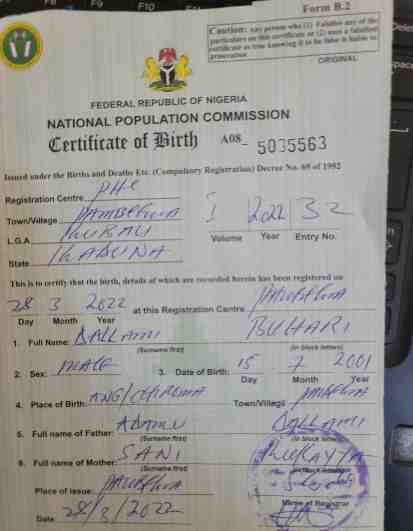 F8
F9
F10
Form B.2
Caution: Any person who (1) Falsifies any of the
particulars on this certificate or (2) uses a falsified
certificate as true knowing it to be false is liable to
prosecution
ORIGINAL
FEDERAL REPUBLIC OF NIGERIA
NATIONAL POPULATION COMMISSION
Certificate of Birth A08- 5035563
Issued under the Births and Deaths Etc. (Compulsory Registration) Decree No. 69 of 1992
Registration Centre PHC
Town/Village PAMBEGUA 1 2022 32
L.G.A KUBAU Volume Year Entry No.
State KADUNA
This is to certify that the birth, details of which are recorded herein has been registered on
28 3 2022 at this Registration Centre PAMBEGUA
Day Month Year
1. Full Name: BUHARI
(Surname first) (in block letters)
2. Sex: MALE 3. Date of Birth: 15 7 2001
Day Month Year
4. Place of Birth: Town/Village PAMBEGUA
5. Full name of Father: ADAMU
(Surname first) (in block letters)
6. Full name of Mother: SANI RUKAYYA
(Surname first)
Place of issue: PAMBEGUA
Name of Registrar
Date 28/3/2022